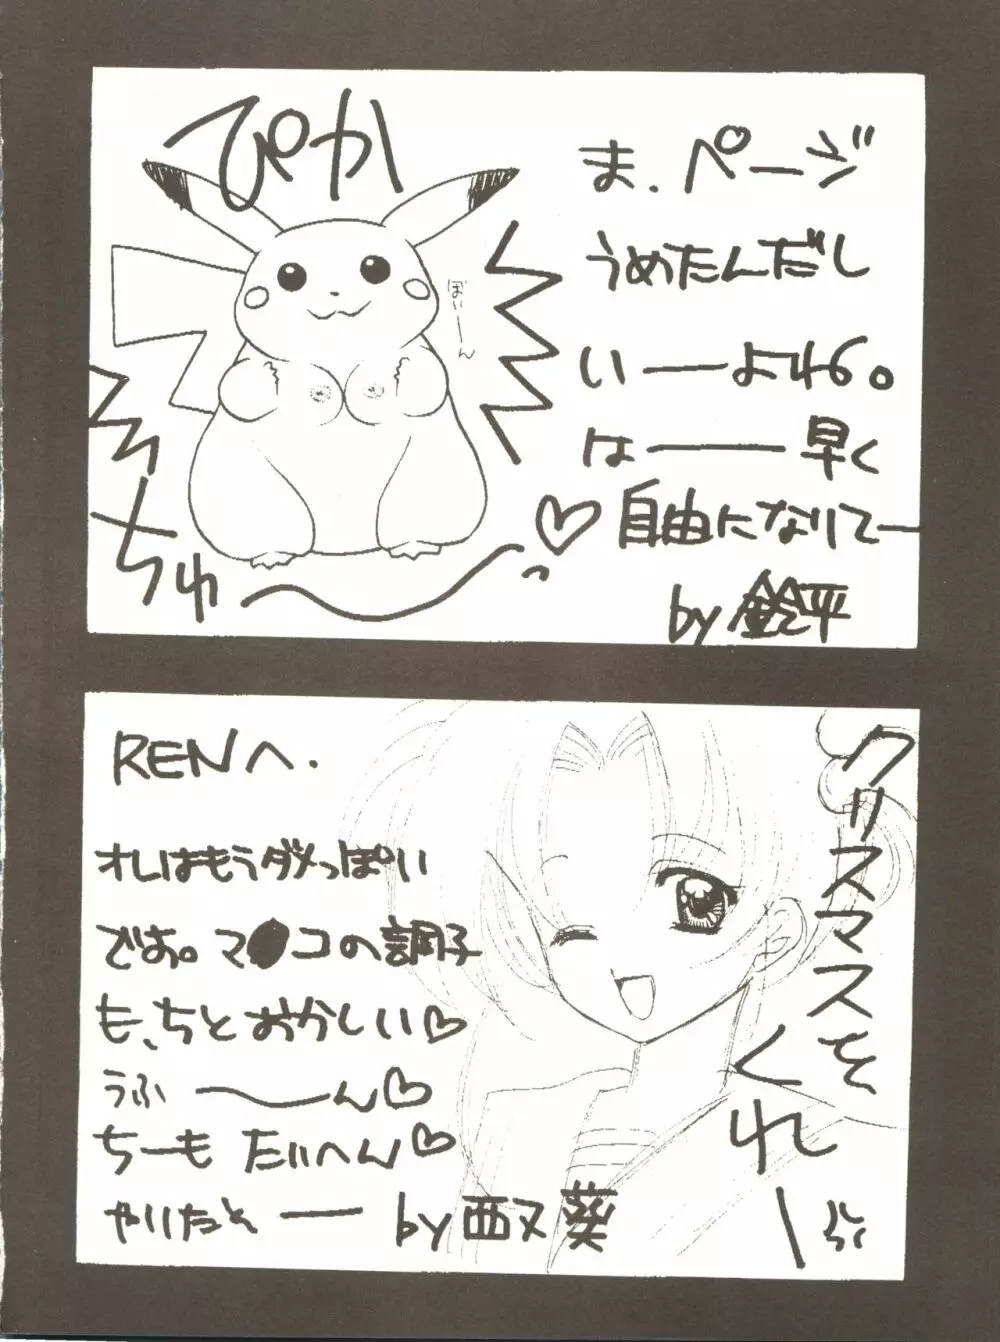 ぴか
ちゅ
ぼいーん
ま、ページ
うめたんだし
いーよね。
はー早く
自由になりてー
by 鈴平
RENへ.
オレはもうダメっぽい
です。マ●コの調子
も、ちとおかしい♡
うふーん♡
ちーも たいへん♡
やいたとー
by 西又葵
クリスマスを
くれー